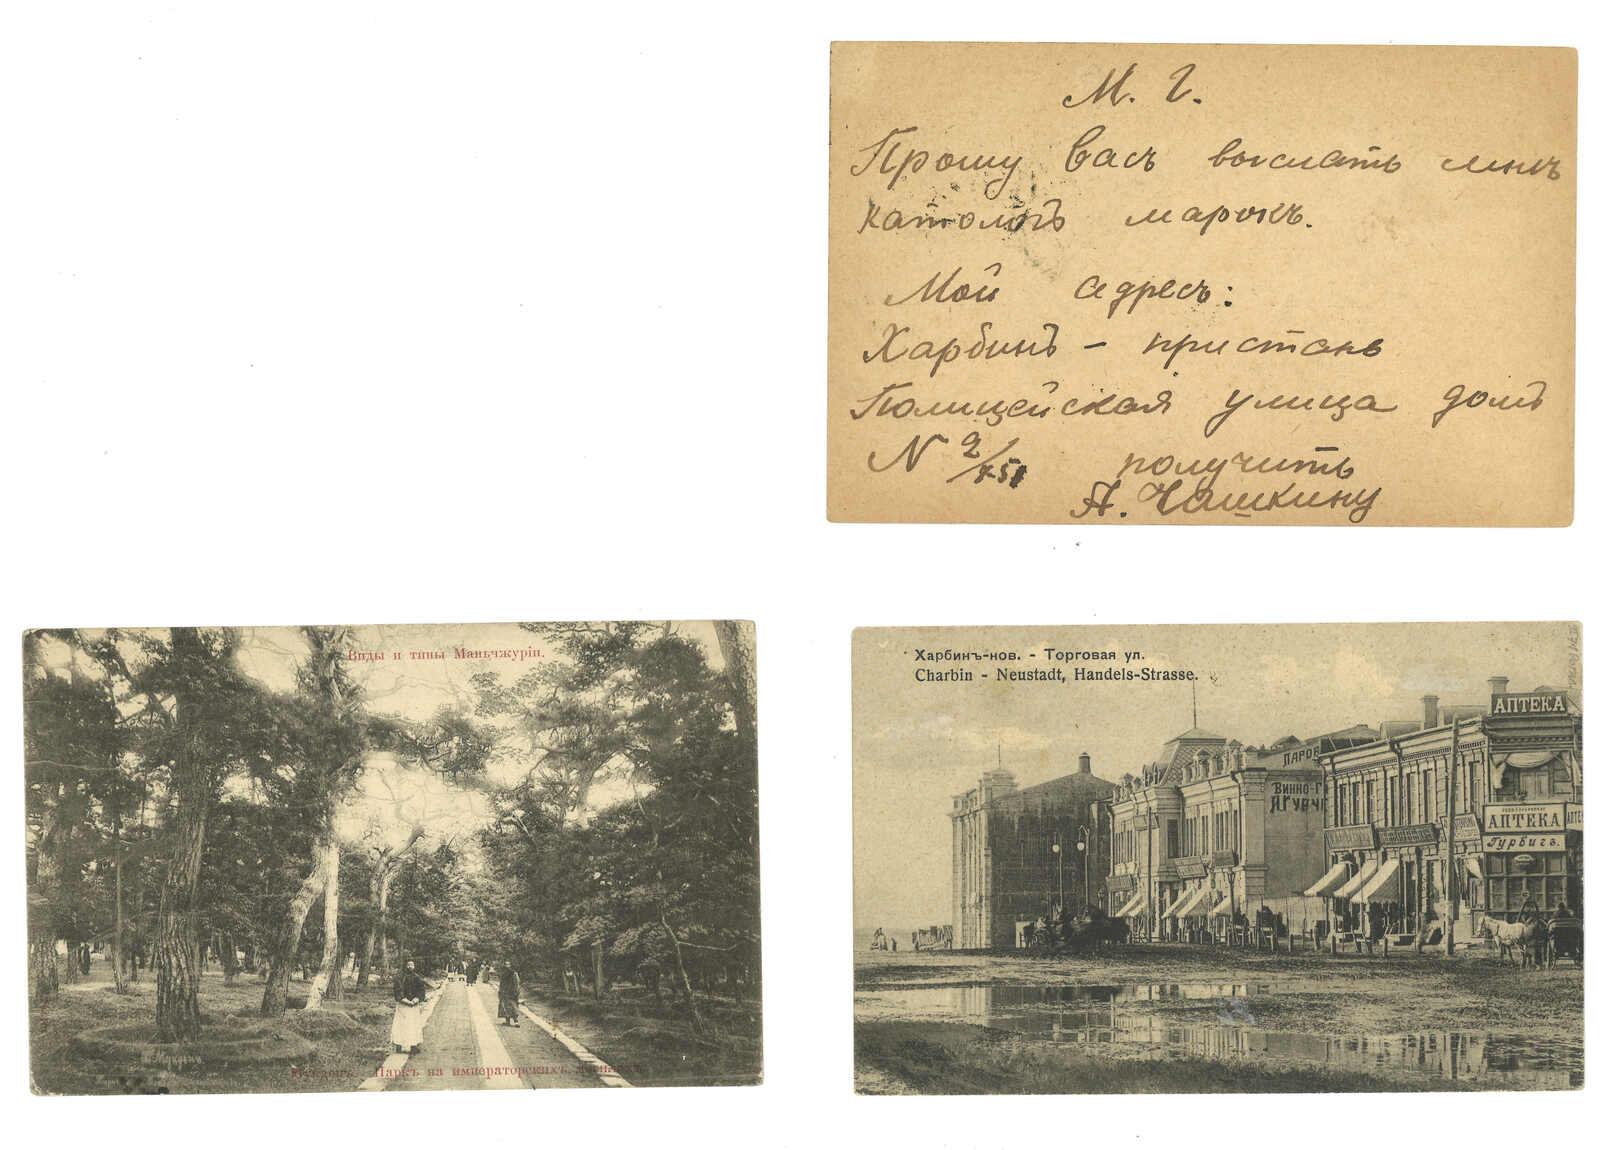 М. Г.
Прошу Васъ выслать мнѣ
катологъ марокъ.
Мой адресъ:
Харбинъ - пристань
Полицейская улица домъ
N 2/451 получить
А. Чашкину
Виды и типы Маньчжуріи.
Мукденъ. Паркъ на императорскихъ
Харбинъ-нов. - Торговая ул.
Charbin - Neustadt, Handels-Strasse.
АПТЕКА
ПАРОВ
ВИННО-Г
АПТЕКА
Гурбигъ.